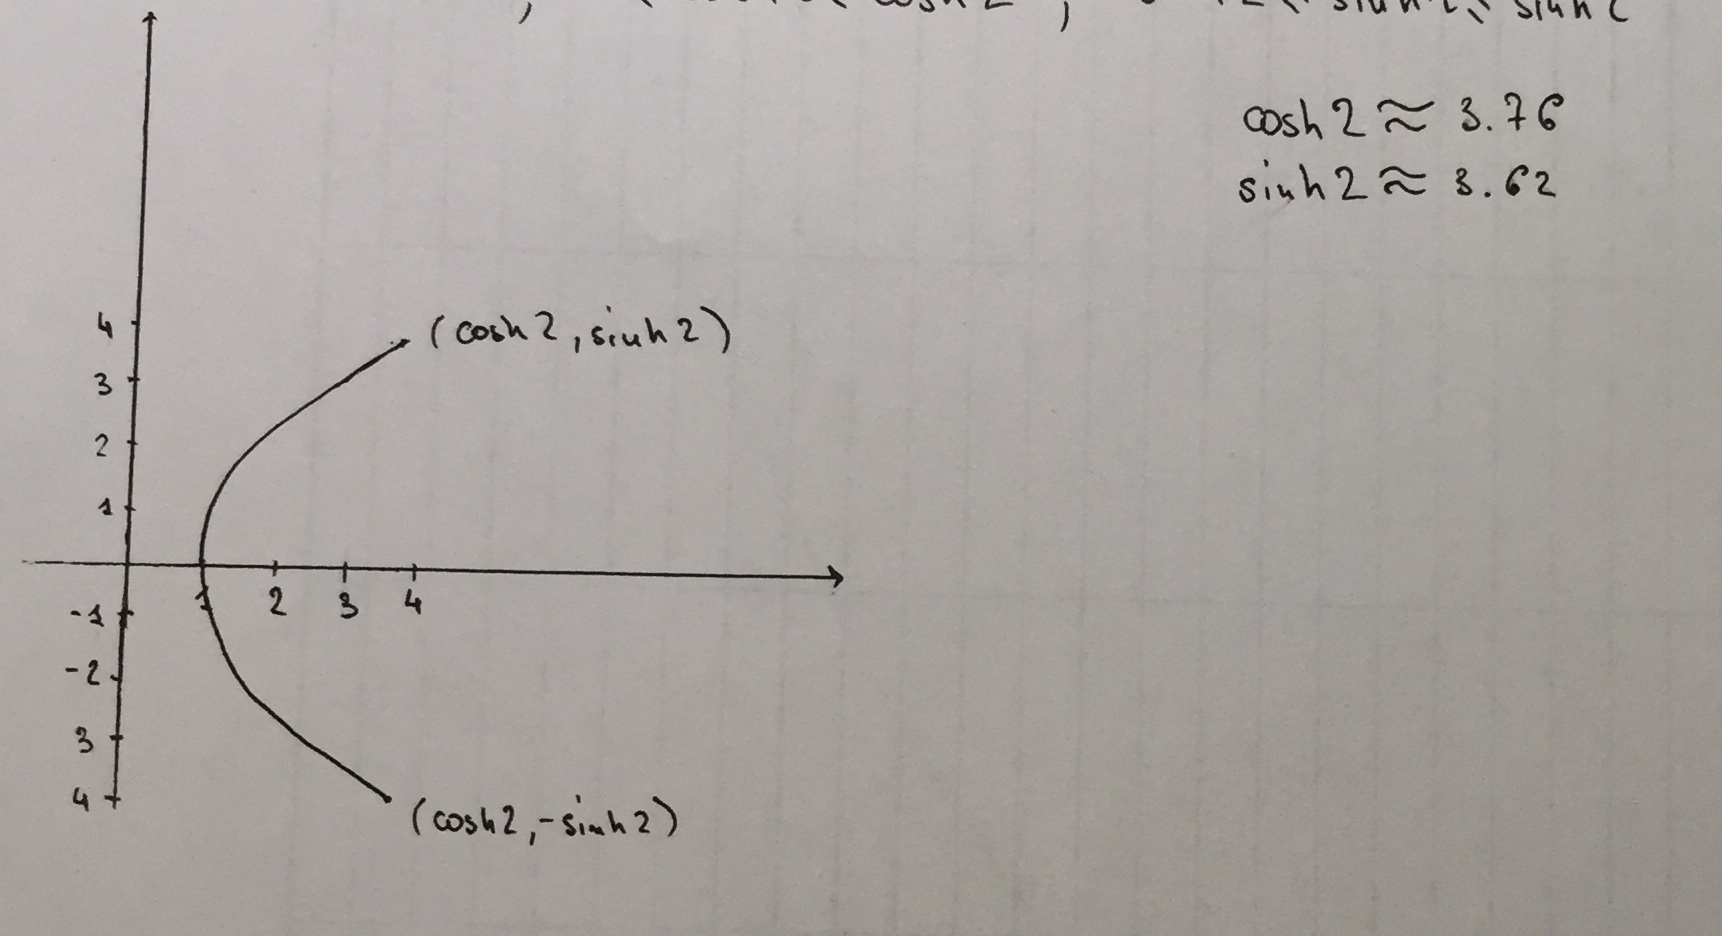 cosh 2 ≈ 3.76
sinh 2 ≈ 3.62
4 (cosh 2, sinh 2)
3
2
1
1 2 3 4
-1
-2
3
4
(cosh 2, -sinh 2)